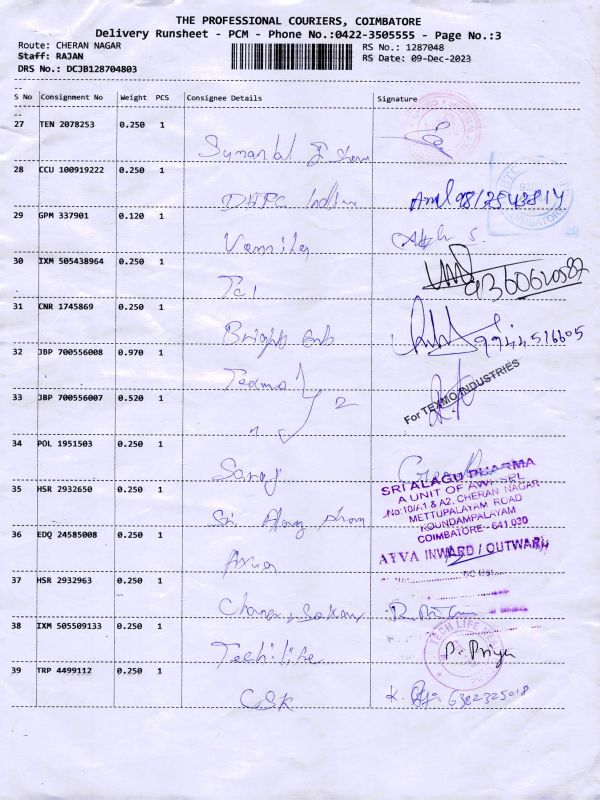 THE PROFESSIONAL COURIERS, COIMBATORE
Delivery Runsheet - PCM - Phone No.:0422-3505555 - Page No.:3
Route: CHERAN NAGAR RS No.: 1287048
Staff: RAJAN RS Date: 09-Dec-2023
DRS No.: DCJB128704803
S No Consignment No Weight PCS Consignee Details Signature
27 TEN 2078253 0.250 1
28 CCU 100919222 0.250 1
29 GPM 337901 0.120 1
COIMBATORE
30 IXM 505438964 0.250 1
9360620582
31 CNR 1745869 0.250 1
Bright
9944516605
32 JBP 700556008 0.970 1
Texmo
For TEXMO INDUSTRIES
33 JBP 700556007 0.520 1
2
34 POL 1951503 0.250 1
Saroj
SRI ALAGU PHARMA
35 HSR 2932650 0.250 1
A UNIT OF AWI SPL
No:10/A1 & A2, CHERAN NAGAR
METTUPALAYAM ROAD
KOUNDAMPALAYAM
COIMBATORE - 641 030
Sri Alagu Pharm
36 EDQ 24585008 0.250 1
AYYA INWARD / OUTWARD
37 HSR 2932963 0.250 1
38 IXM 505509133 0.250 1
TECH LIFE
Techlife
P. Priya
39 TRP 4499112 0.250 1
CSK
K. 6382325018